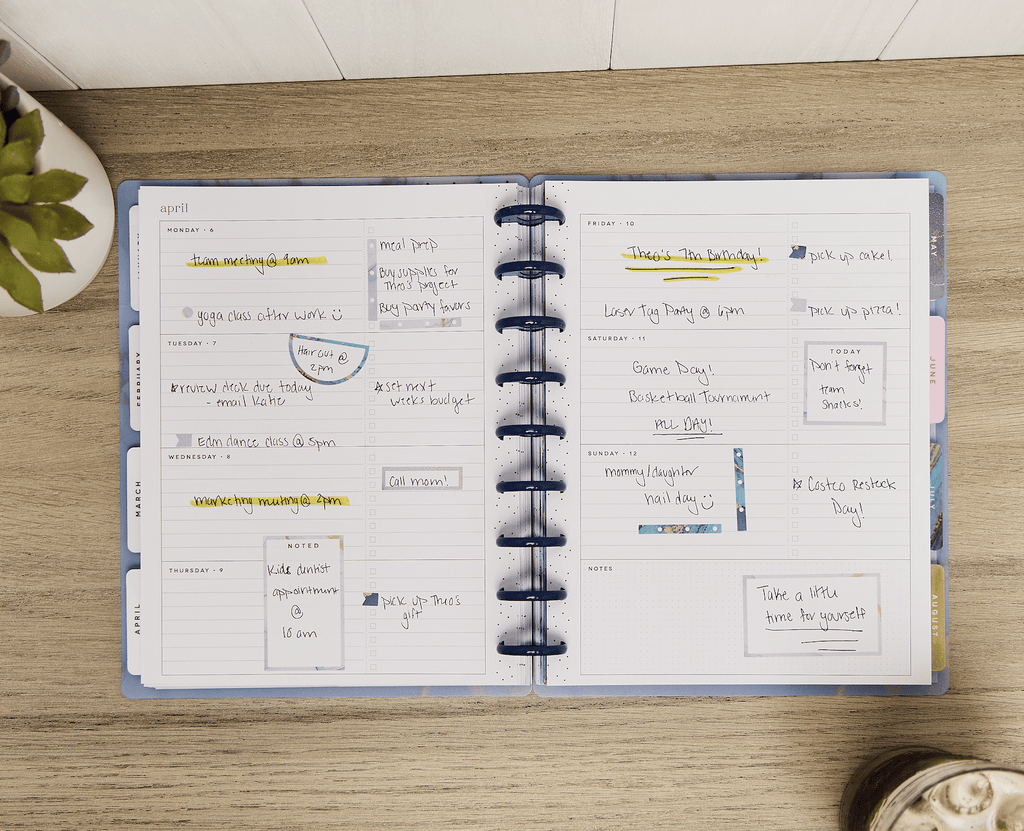 april
MONDAY • 6
team meeting @ 9am
yoga class after work
meal prep
Buy supplies for
Theo's project
Buy party favors
TUESDAY • 7
Hair cut @
2pm
review deck due today
- email Katie
Edm dance class @ 5pm
set next
weeks budget
WEDNESDAY • 8
marketing meeting @ 2pm
Call mom!
THURSDAY • 9
NOTED
Kids dentist
appointment
@
10 am
pick up Theo's
gift
FRIDAY • 10
Theo's 7th Birthday!
Laser Tag Party @ 6pm
pick up cake!
pick up pizza!
SATURDAY • 11
Game Day!
Basketball Tournament
ALL DAY!
TODAY
Don't forget
team
snacks!
SUNDAY • 12
mommy/daughter
nail day
Costco Restock
Day!
NOTES
Take a little
time for yourself
FEBRUARY
MARCH
APRIL
MAY
JUNE
JULY
AUGUST